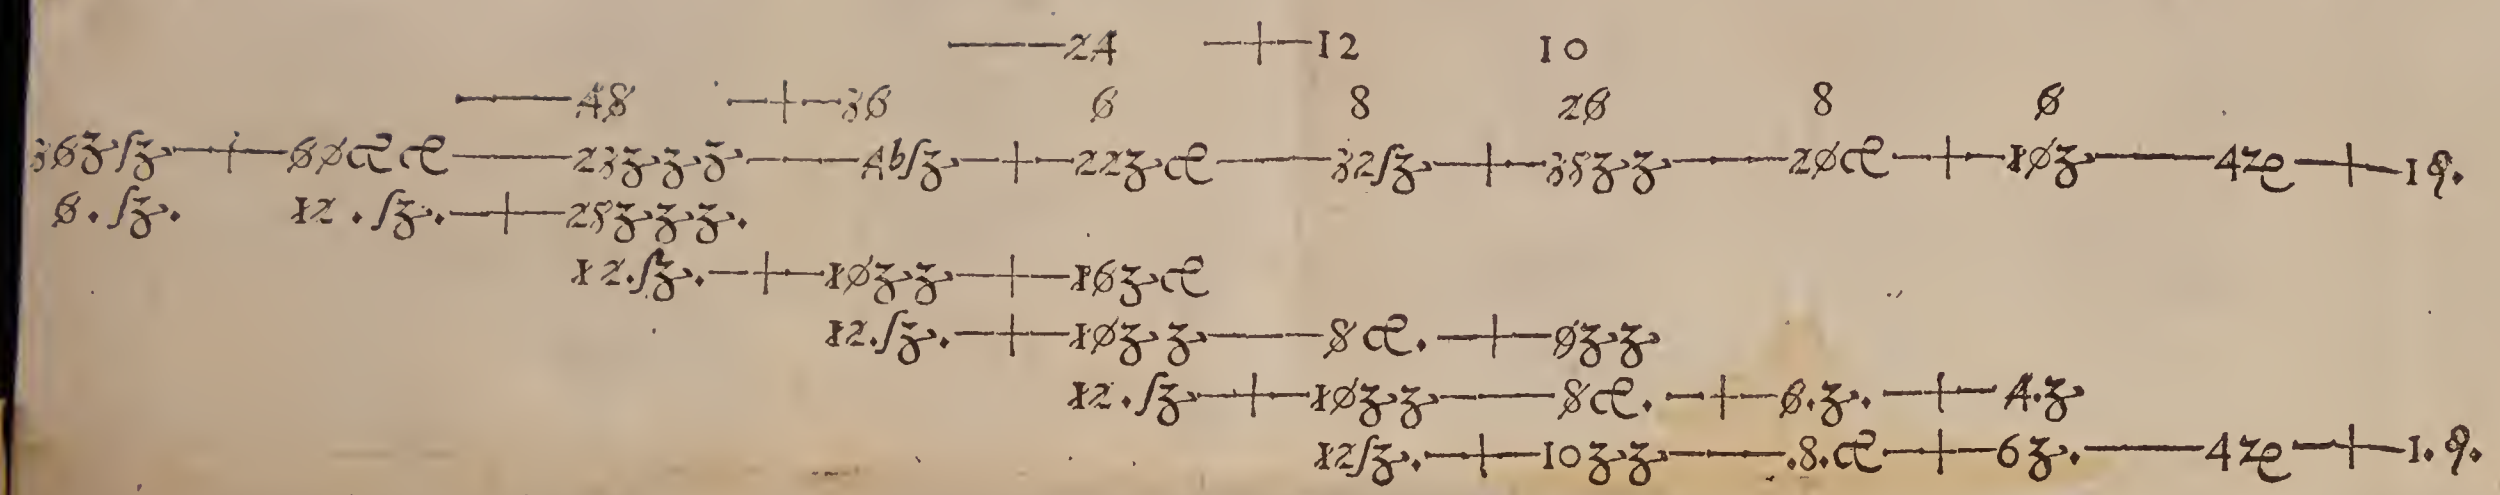 —24 —+—12 10
—48 —+—36 6 8 26 8 6
36ʒſʒ—+—60cece—23ʒʒʒ—4bſʒ—+—22ʒce—32ſʒ—+—35ʒʒ—20ce—+—10ʒ—4ze—+—1ꝯ.
6.ſʒ. 12.ſʒ.—+—25ʒʒʒ.
12.ſʒ.—+—10ʒʒ—+—16ʒce
12.ſʒ.—+—10ʒʒ—8ce.—+—9ʒʒ
12.ſʒ—+—10ʒʒ—8ce.—+—6.ʒ.—+—4.ʒ
12ſʒ.—+—10ʒʒ—.8.ce—+—6ʒ.—4ze—+—1.ꝯ.